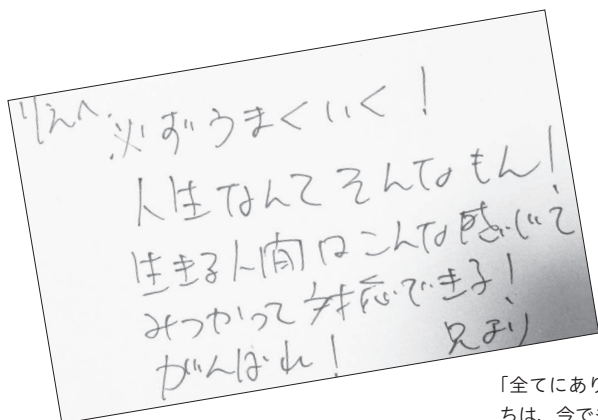 りえへ
必ずうまくいく！
人生なんてそんなもん！
生きる人間はこんな感じで
みつかって対応できる！
がんばれ！ 兄より
「全てにあり
ちは、今で